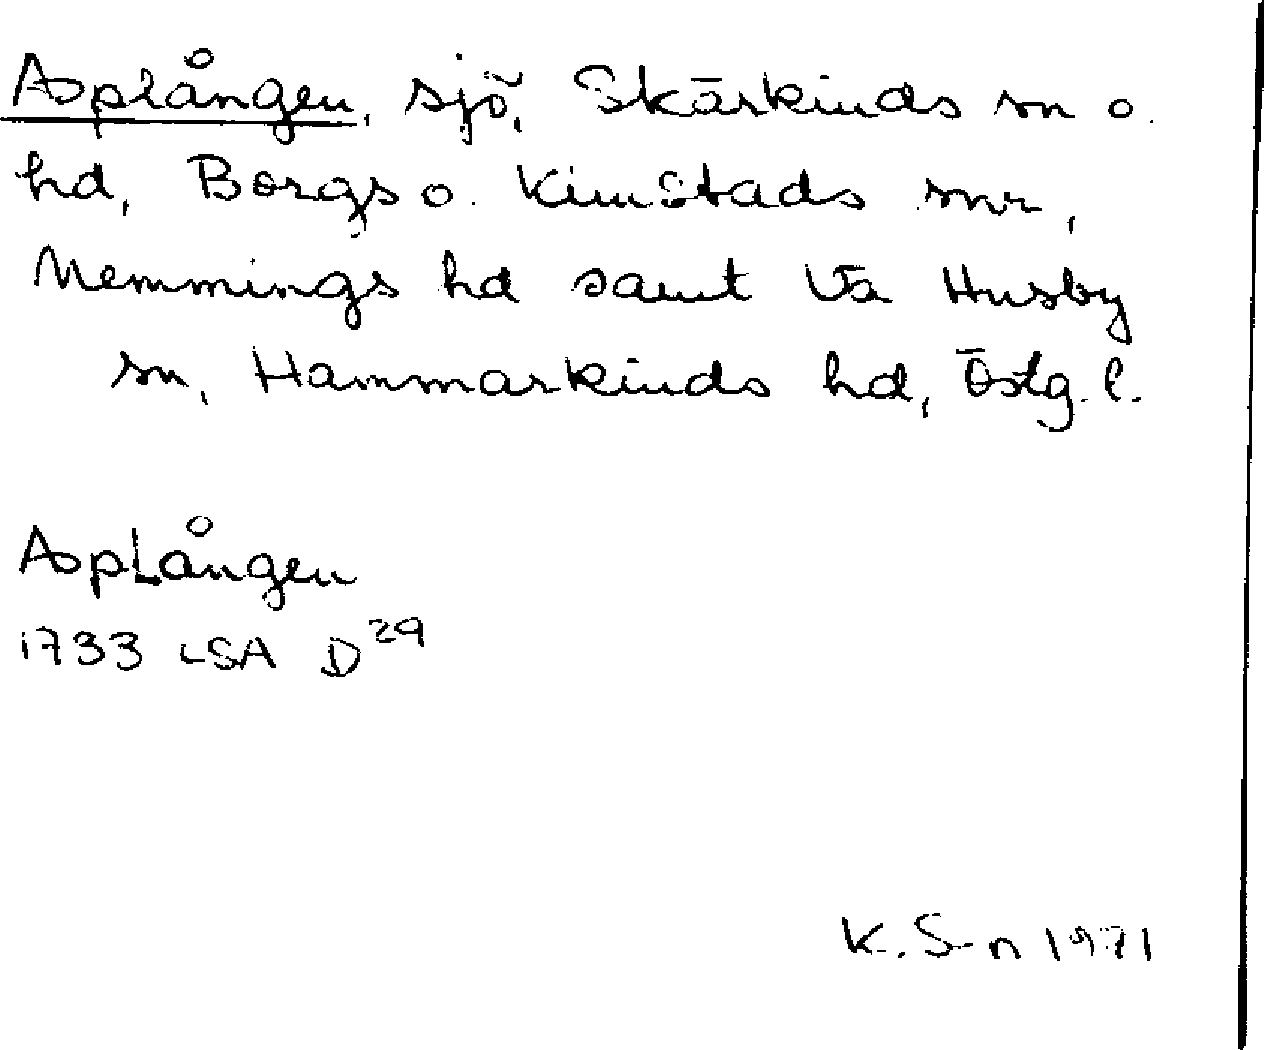 Asplången, sjö, Skärkinds sn o.
hd, Borgs o. Kimstads snr,
Memmings hd samt Vä Husby
sn, Hammarkinds hd, Östg. l.
Asplången
1733 LSA D29
K. S-n 1971